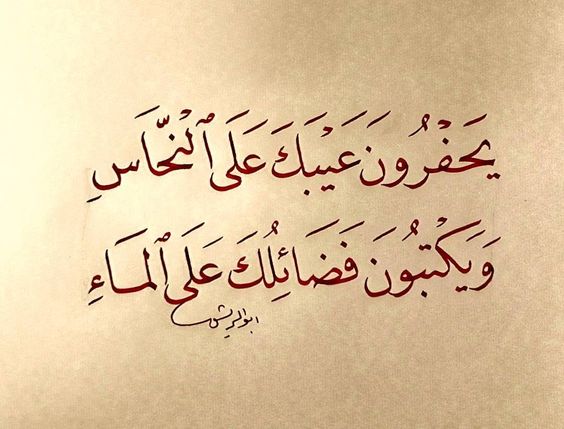 يَحْفُرُونَ عَيْبَكَ عَلَى ٱلنُّحَاسِ
وَيَكْتُبُونَ فَضَائِلُكَ عَلَى ٱلمَاءِ
ابوالريش